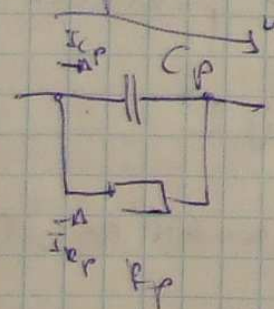 I_Cp
C_p
I_Rp
R_p